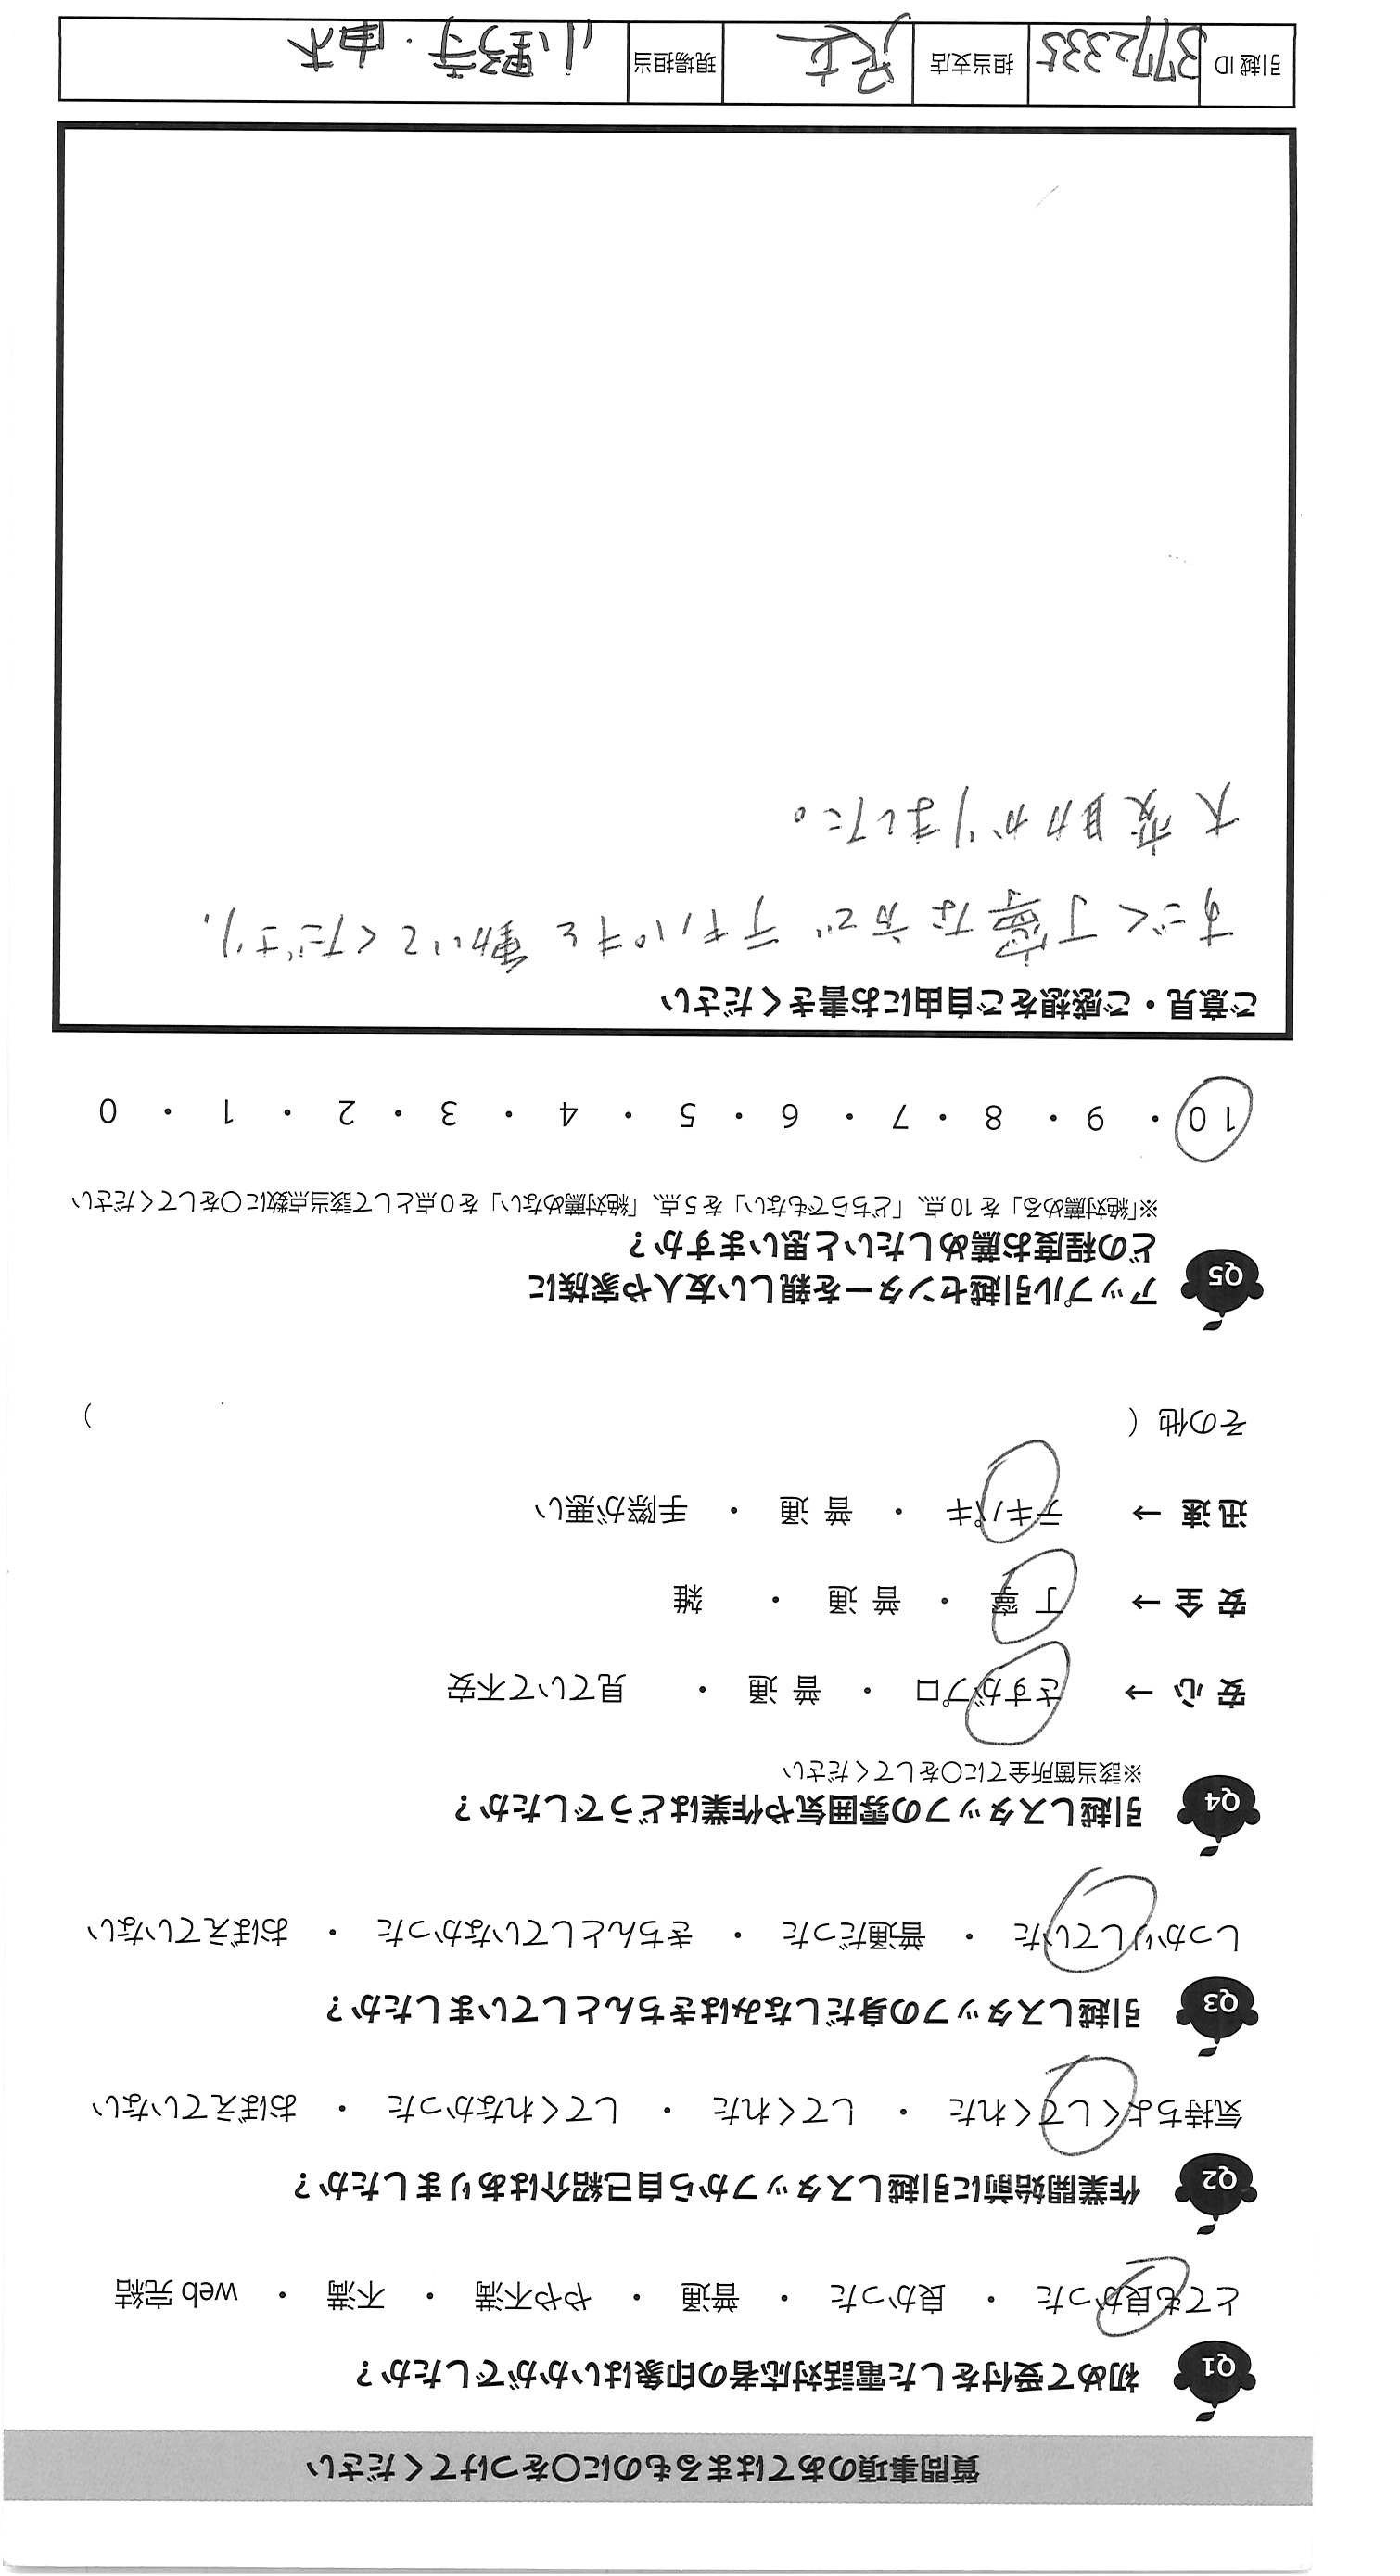 質問事項のあてはまるものに〇をつけてください
Q1 初めて受付をした電話対応者の印象はいかがでしたか？
とても良かった ・ 良かった ・ 普通 ・ やや不満 ・ 不満 ・ web 完結
Q2 作業開始前に引越しスタッフから自己紹介はありましたか？
気持ちよくしてくれた ・ してくれた ・ してくれなかった ・ おぼえていない
Q3 引越しスタッフの身だしなみはきちんとしていましたか？
しっかりしていた ・ 普通だった ・ きちんとしていなかった ・ おぼえていない
Q4 引越しスタッフの雰囲気や作業はどうでしたか？
※該当箇所全てに〇をしてください
安 心 → さすがプロ ・ 普 通 ・ 見ていて不安
安 全 → 丁 寧 ・ 普 通 ・ 雑
迅 速 → テキパキ ・ 普 通 ・ 手際が悪い
その他（ ）
Q5 アップル引越センターを親しい友人や家族に
どの程度お薦めしたいと思いますか？
※「絶対薦める」を 10 点、「どちらでもない」を 5 点、「絶対薦めない」を 0 点として該当点数に〇をしてください
10 ・ 9 ・ 8 ・ 7 ・ 6 ・ 5 ・ 4 ・ 3 ・ 2 ・ 1 ・ 0
ご意見・ご感想をご自由にお書きください
すごく丁寧な方で テキパキと動いてくださり、
大変助かりました。
引越 ID 3772335 担当支店 現場担当 小野寺・由木